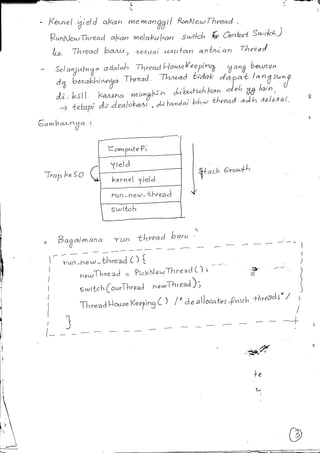 - Kernel yield akan memanggil RunNewThread.
RunNewThread akan melakukan switch (Context Switch)
ke Thread baru, sesuai urutan antrian Thread
- Selanjutnya adalah ThreadHouseKeeping yang berurusan
dg berakhirnya Thread. Thread tidak dapat langsung
di-kill karena mungkin dibutuhkan oleh yg lain,
→ tetapi di dealokasi, ditandai bhw thread sdh selesai.
Gambarnya :
ComputePi
yield
Trap ke SO
kernel yield
run-new-thread
switch
Stack Growth
= Bagaimana run thread baru ?
run_new_thread () {
newThread = PickNewThread ( );
switch (ourThread newThread);
ThreadHouseKeeping ( ) /* deallocates finish threads */
}
te
3